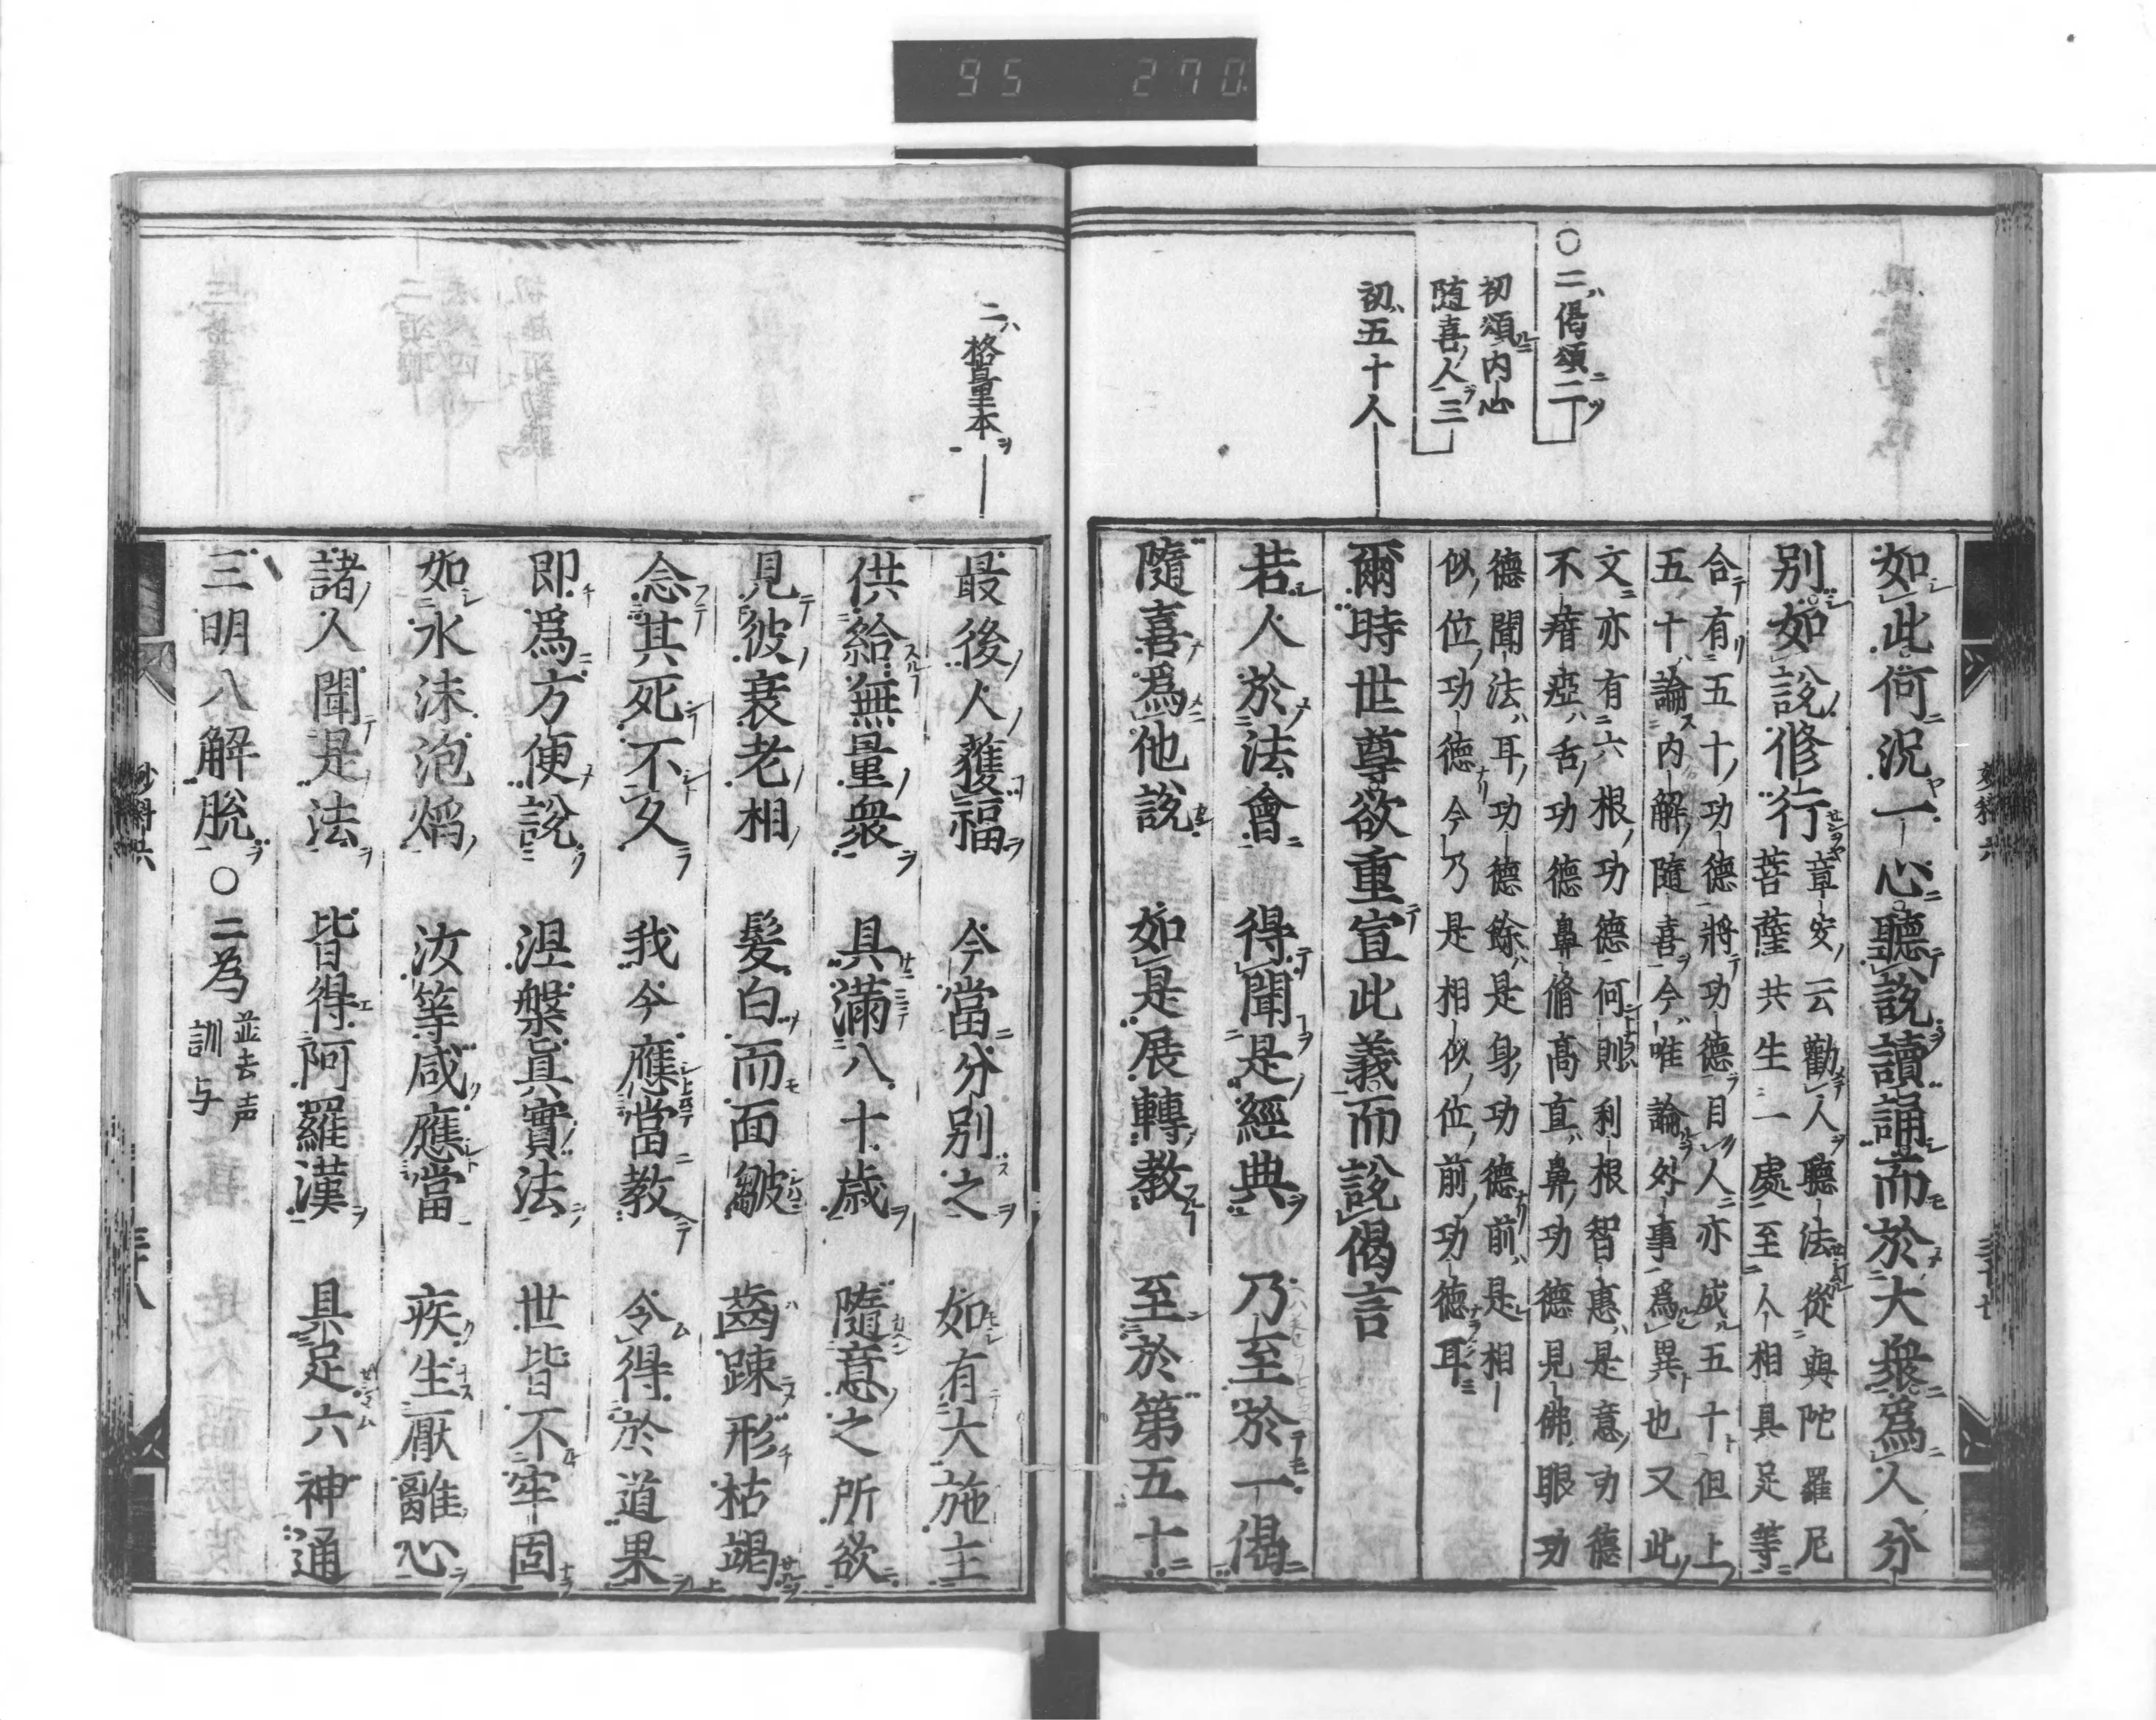 95 270
○二偈頌二
初頌内心
随喜人三
初五十人
如此何況一心聽說讀誦而於大衆爲人分
别如說修行
章安云勸人聽法從與陀羅尼
菩薩共生一處至人相具足等
合有五十功德將功德目人亦成五十但上
五十論内解隨喜今唯論外事爲異也又此
文亦有六根功德何則利根智惠是意功德
不瘖瘂舌功德鼻脩高直鼻功德見佛眼功
德聞法耳功德餘是身功德前是相
似位功德今乃是相似位前功德耳
爾時世尊欲重宣此義而說偈言
若人於法會 得聞是經典 乃至於一偈
隨喜爲他說 如是展轉教 至於第五十
二格量本
最後人獲福 今當分别之 如有大施主
供給無量衆 具滿八十歳 隨意之所欲
見彼衰老相 髮白而面皺 齒踈形枯竭
念其死不久 我今應當教 令得於道果
即爲方便說 涅槃眞實法 世皆不牢固
如水沫泡焰 汝等咸應當 疾生厭離心
諸人聞是法 皆得阿羅漢 具足六神通
三明八解脫○二為
並去声
訓与